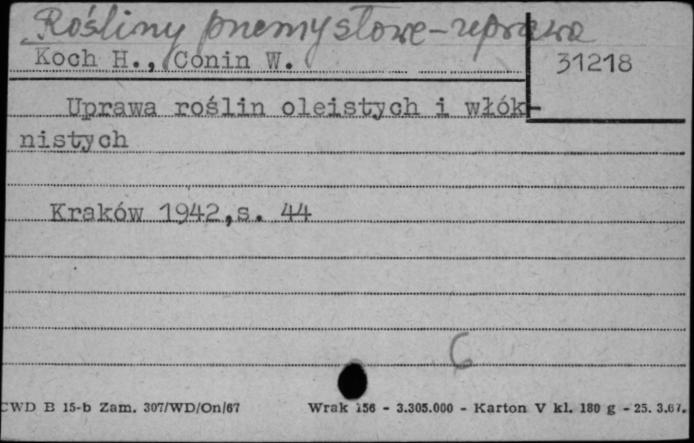 Rośliny przemysłowe - uprawa
Koch H., Conin W.
31218
Uprawa roślin oleistych i włók-
nistych
Kraków 1942,s. 44
6
CWD B 15-b Zam. 307/WD/On/67
Wrak 156 - 3.305.000 - Karton V kl. 180 g - 25. 3.67.